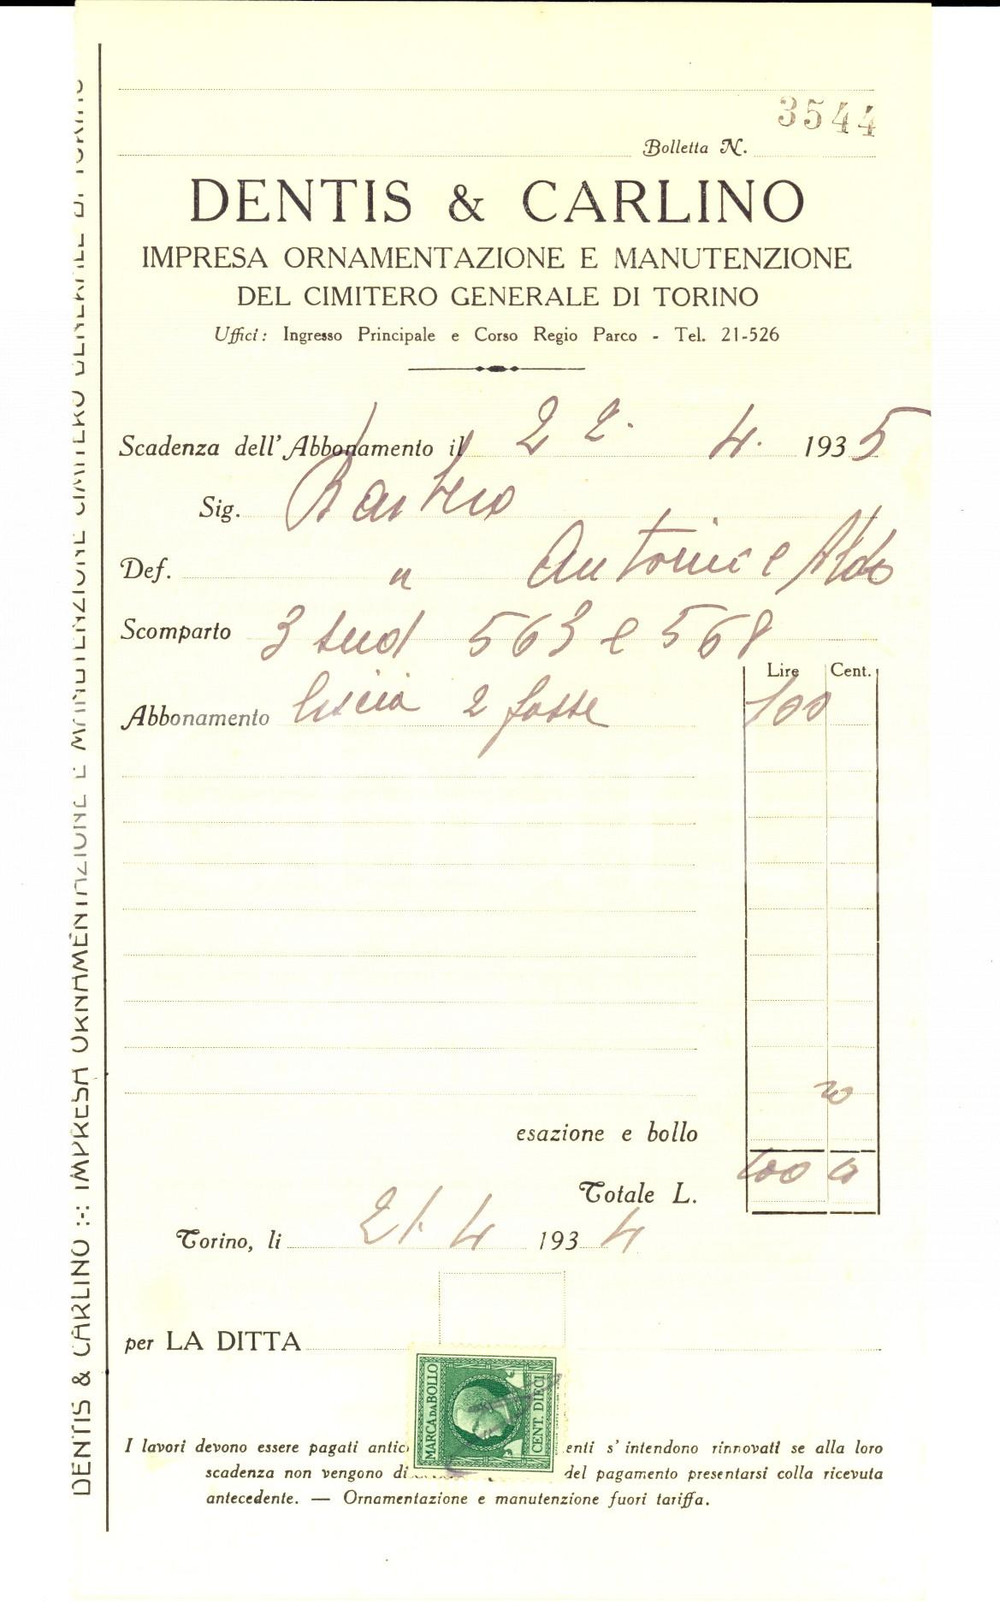 3544
Bolletta N.
DENTIS & CARLINO
IMPRESA ORNAMENTAZIONE E MANUTENZIONE
DEL CIMITERO GENERALE DI TORINO
Uffici: Ingresso Principale e Corso Regio Parco - Tel. 21-526
Scadenza dell'Abbonamento il 22. 4. 1935
Sig.
Def. " Antonio e Aldo
Scomparto 3 sud 563 e 568
Lire Cent.
Abbonamento 2 fosse 100
esazione e bollo
Totale L. 100
Torino, li 21. 4 1934
per LA DITTA
MARCA DA BOLLO
CENT. DIECI
I lavori devono essere pagati antici enti s'intendono rinnovati se alla loro
scadenza non vengono di del pagamento presentarsi colla ricevuta
antecedente. — Ornamentazione e manutenzione fuori tariffa.
DENTIS & CARLINO :-: IMPRESA ORNAMENTAZIONE E MANUTENZIONE CIMITERO GENERALE DI TORINO